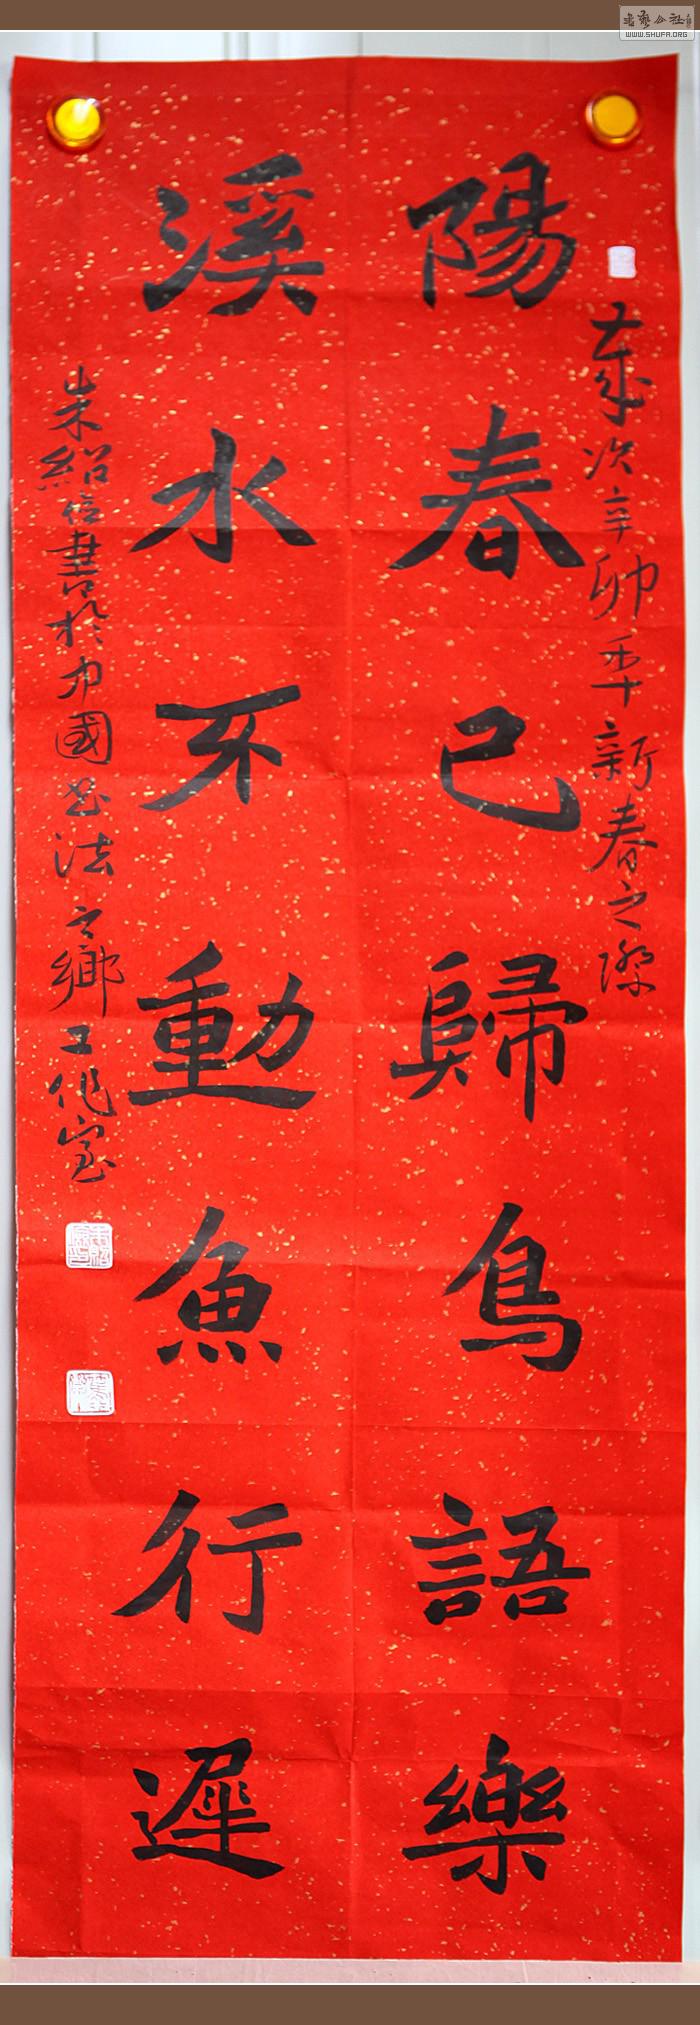 歲次辛卯年新春之際
陽春已歸鳥語樂
溪水不動魚行遲
朱紹信書於中國書法之鄉工作室
WWW.SHUFA.ORG